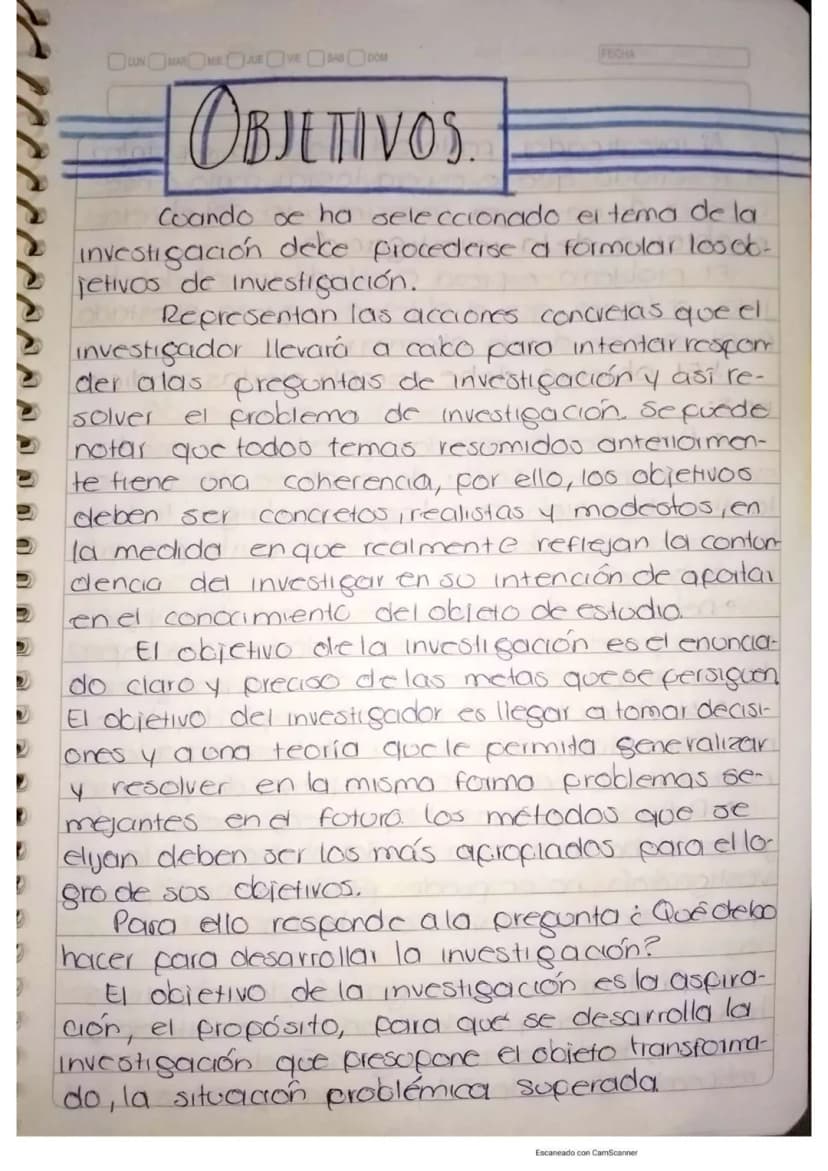 LUN MAR MIE JUE VIE SAB DOM FECHA
OBJETIVOS.
Cuando se ha seleccionado el tema de la
investigación debe procederse a formular los ob-
jetivos de investigación.
Representan las acciones concretas que el
investigador llevará a cabo para intentar respon
der a las preguntas de investigación y así re-
solver el problema de investigación. Se puede
notar que todos temas resumidos anteriormen-
te tiene una coherencia, por ello, los objetivos
deben ser concretos, realistas y modestos, en
la medida en que realmente reflejan la contun
dencia del investigar en su intención de aportar
en el conocimiento del objeto de estudio.
El objetivo de la investigación es el enuncia-
do claro y preciso de las metas que se persiguen
El objetivo del investigador es llegar a tomar decisi-
ones y a una teoría que le permita generalizar
y resolver en la misma forma problemas se-
mejantes en el futuro. los métodos que se
elijan deben ser los más apropiados para el lo-
gro de sus objetivos.
Para ello responde a la pregunta ¿Qué debo
hacer para desarrollar la investigación?
El objetivo de la investigación es la aspira-
ción, el propósito, para que se desarrolla la
investigación que presupone el objeto transforma-
do, la situación problémica superada
Escaneado con CamScanner